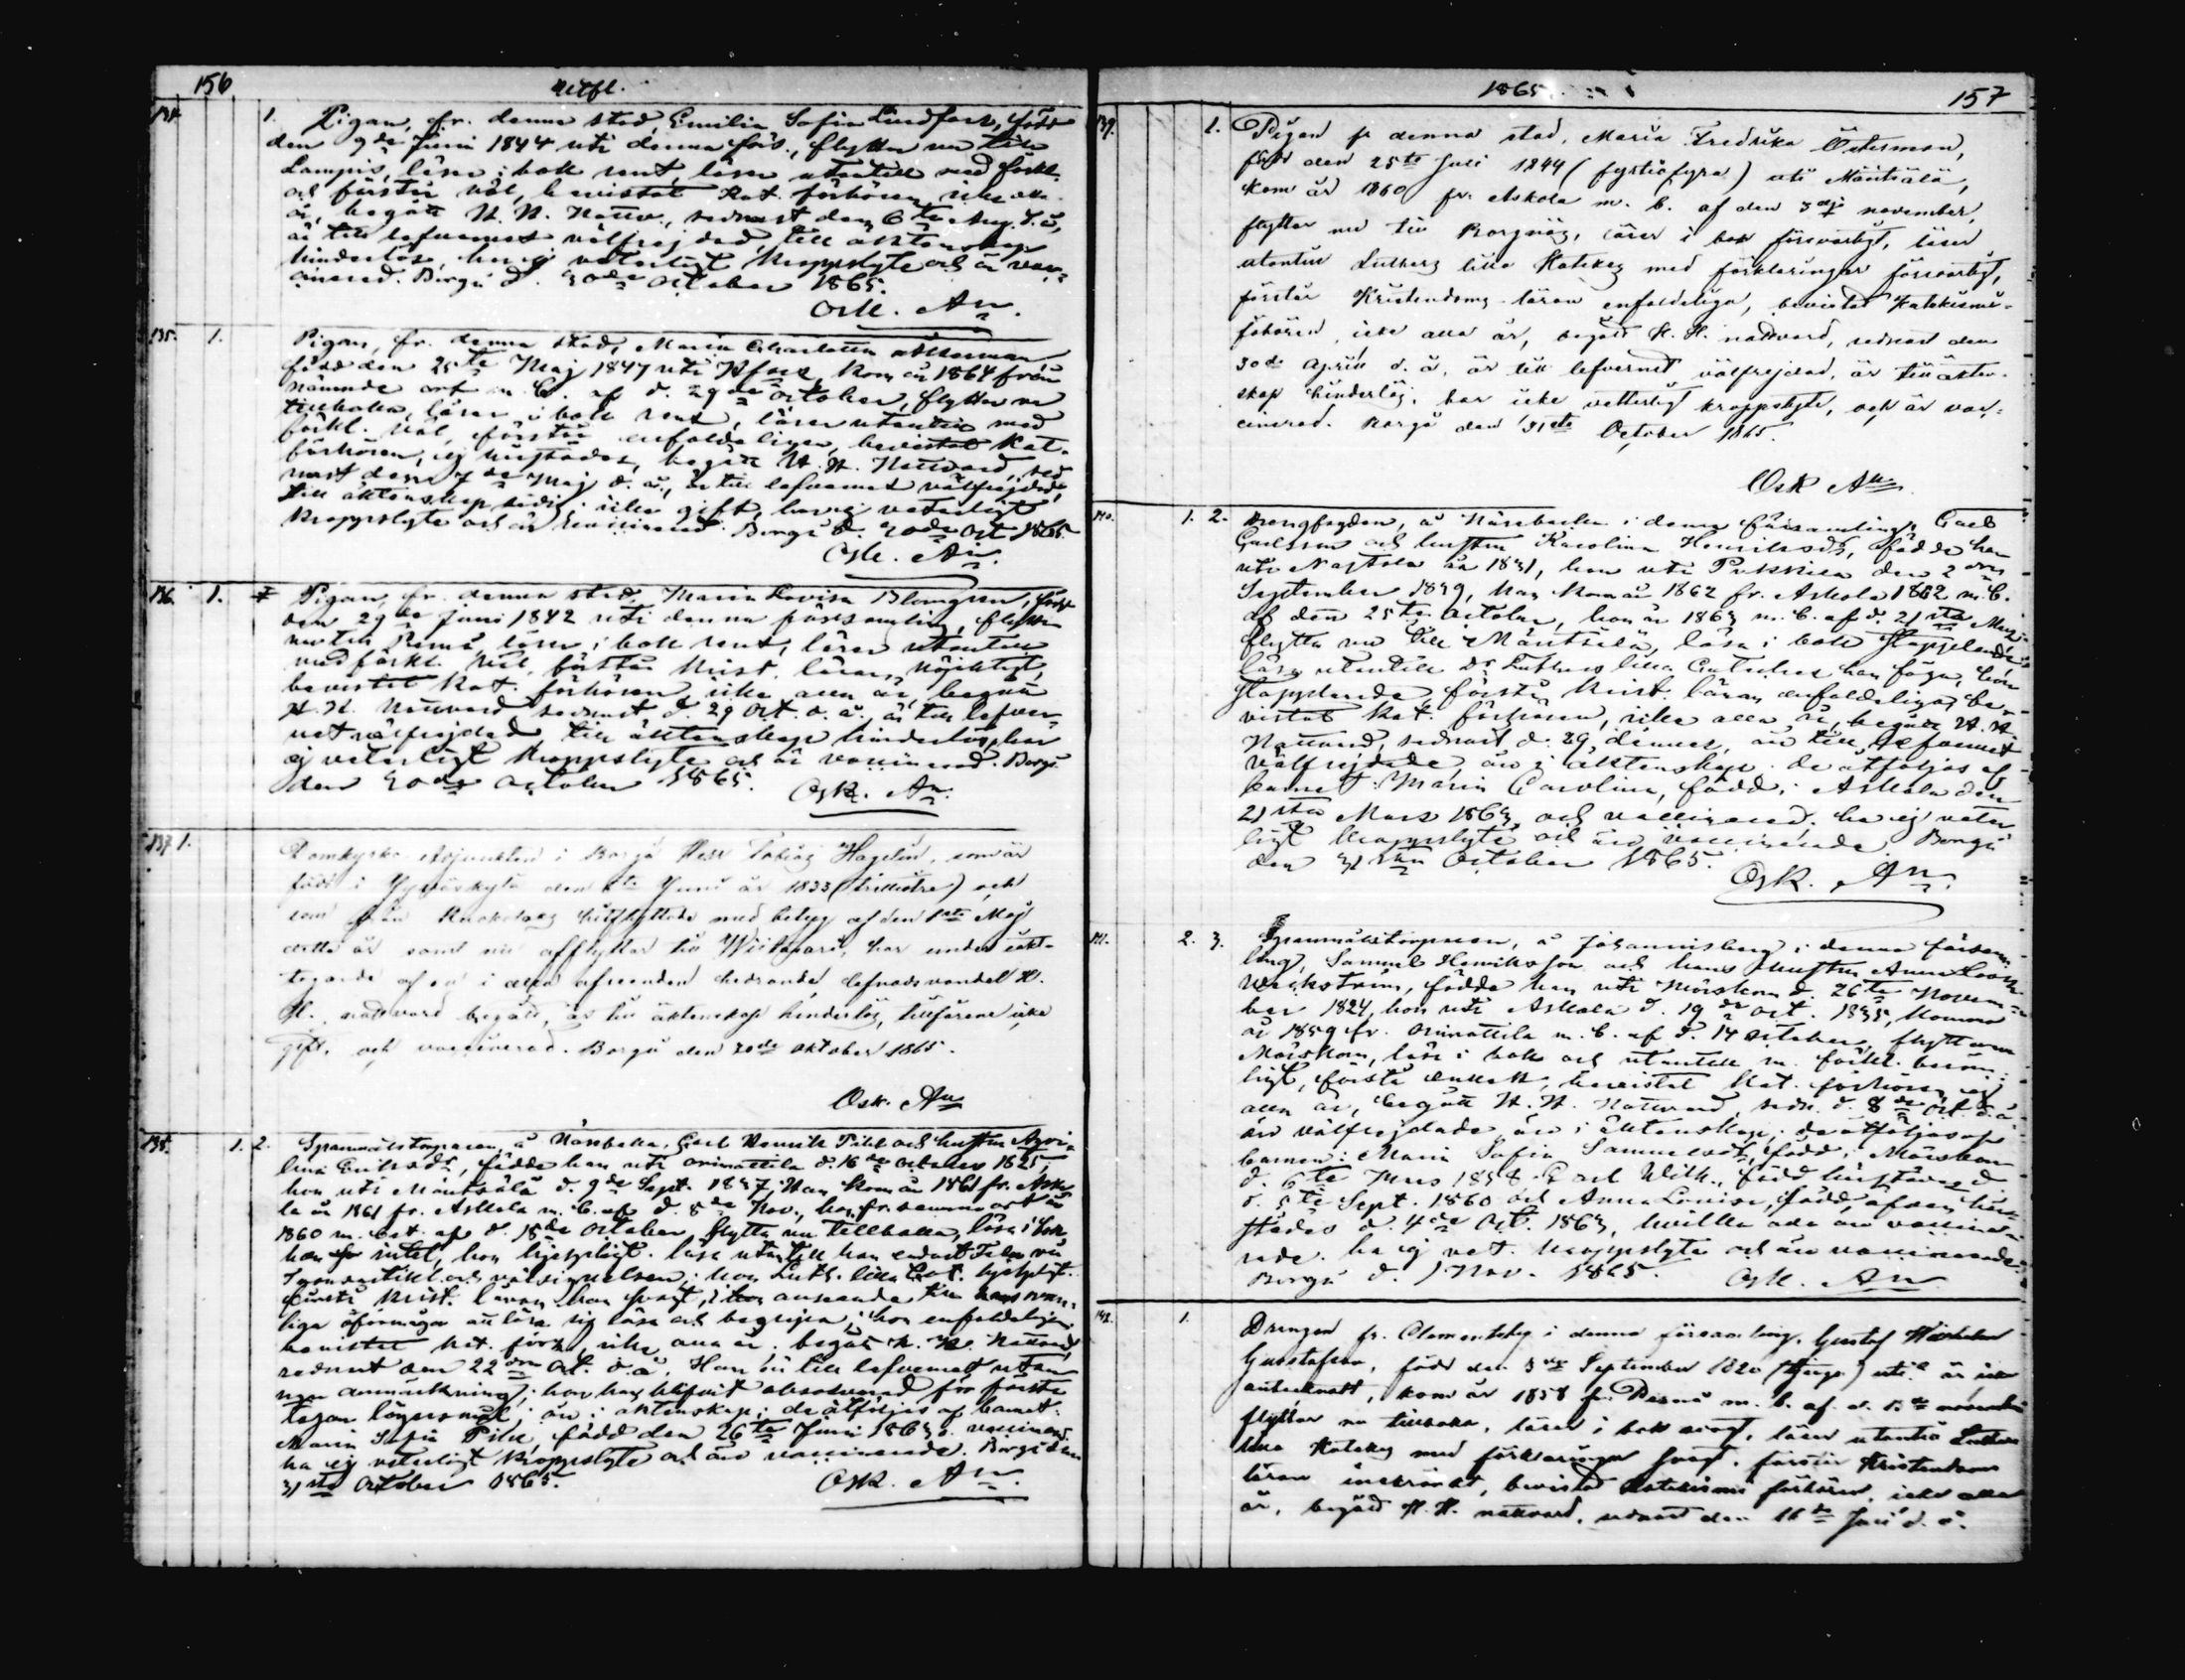 156 Utfl.
134. 1. Pigan, fr. denna stad, Emilia Sofia Lindfors, född
den 9de Juni 1844 uti denna förs., flyttar nu till
Lampis, läser i bok rent, läser utantill med förkl.
och förstår väl, bevistat Kat. förhören, icke alla
år, begått H. H. Nattv., sednast den 6te Aug. d. å.,
är till lefvernet välfrejdad, till äktenskap
hinderlös, har ej veterligt kroppslyte och är vac-
cinerad. Borgå d. 30de October 1865.
Osk. An.
135. 1. Pigan, fr. denna stad, Maria Charlotta Åkerman,
född den 25te Maj 1847 uti Hfors, kom år 1864 från
nämnde ort m. b. af d. 29de October, flyttar nu
tillbaka, läser i bok rent, läser utantill med
förkl. väl, förstår enfaldeligen, bevistat Kat.
förhören, ej härstädes, begått H. H. Nattvard, sed-
nast den 7de Maj d. å., är till lefvernet välfrejdad,
till äktenskap ledig, icke gift, har ej veterligt
kroppslyte och är vaccinerad. Borgå d. 30de Oct. 1865.
Osk. An.
136. 1. Pigan, fr. denna stad, Maria Lovisa Blomgren, född
den 29de Juni 1842 uti denna församling, flyttar
nu till Pernå, läser i bok rent, läser utantill
med förkl. väl, förstår Krist. läran nöjaktigt,
bevistat Kat. förhören, icke alla år, begått
H. H. Nattvard sednast d. 29 Oct. d. å., är till lefver-
net välfrejdad, till äktenskap hinderlös, har
ej veterligt kroppslyte och är vaccinerad. Borgå
den 30de October 1865. Osk. An.
137. 1. Domkyrko Adjunkten i Borgå Herr Tobias Hagelin, som är
född i Jyväskylä den Juni år 1833 (trettiotre) och
som från Ruokolaks hitflyttade med betyg af den 1sta Maj
detta år samt nu afflyttar till Wiitasaari, har under iakt-
tagande af en i alla afseenden hedrande lefnadsvandel H.
H. nattvard begått, är till äktenskap hinderlös, tillförene icke
gift, och vaccinerad. Borgå den 30de Oktober 1865.
Osk. An
138. 1. 2. Spannmålstorparen, å Näsebacka, Carl Henrik Pihl och hustru
lina Eriksdr, födde han uti Orimattila d. 16de October 1825,
hon uti Mäntsälä d. 9de Sept. 1837, Han kom år 1861 fr. Asko-
la år 1861 fr. Askola m. b. af d. 8de Nov., hon fr. samma ort år
1860 m. bet. af d. 18de October, flytta nu tillbaka, läsa i bok,
han intet, hon hjelpligt. läsa utantill han endast Fader vår
Trosartikl. och välsignelsen; hon Luth. lilla Cat. hjelpligt.
förstå Krist. läran han svagt, i anseende till hans van-
liga oförmåga att lära sig läsa och begripa; hon enfaldeligen.
bevistat Kat. förh., icke alla år. begått H. H. Nattvard,
sednast den 22dra Oct. d. å. Han är till lefvernet utan
någon anmärkning; hon har blifvit absolverad för första
lägersmål; äro i äktenskap; de åtföljas af barnet:
Maria Sofia Pihl, född den 26te Juni 1863, vaccinerad.
ha ej veterligt kroppslyte och äro vaccinerade. Borgå den
31sta October 1865. Osk. An.
1865. 157
139. 1. Pigan fr denna stad, Maria Fredrika Österman,
född den 25te Juli 1844 (fyrtiofyra) uti Mäntsälä,
kom år 1860 fr. Askola m. b. af den 3dje november,
flyttar nu till Borgnäs, läser i bok försvarligt, läser
utantill Luthers lilla Katekes med förklaringar försvarligt,
förstår Kristendoms läran enfaldeligen, bevistat Katekismi-
förhören, icke alla år, begått H. H. nattvard, sednast den
30de April d. å., är till lefvernet välfrejdad, är till äkten-
skap hinderlös, har icke vetterligt kroppslyte, och är vac-
cinerad. Borgå den 31sta October 1865.
Osk An
140. 1. 2. å Näsebacka i denna församling, Carl
Carlsson och hustru Karolina Henriksdr, födde han
uti Nastola år 1831, hon uti Pukkila den 2dra
September 1839, Han kom år 1862 fr. Askola 1862 m. b.
af den 25te October, hon år 1863 m. b. af d. 21sta Mars,
flytta nu till Mäntsälä, läsa i bok stapplande,
läsa utantill Dr Luthers lilla Cateches han föga, hon
stapplande, förstå Krist. läran enfaldeligen, be-
vistat Kat. förhören, icke alla år, begått H. H.
Nattvard, sednast d. 29 dennes, äro till lefvernet
välfrejdade, äro i äktenskap. de åtföljas af
barnet: Maria Carolina, född i Askola den
21sta Mars 1863, och vaccinerad. ha ej veter-
ligt kroppslyte och äro vaccinerade. Borgå
den 31sta October 1865. Osk. An.
141. 2. 3. Spannmålstorparen, å Johannisberg i denna försam-
ling, Samuel Henriksson och hans hustru Anna Lovisa
Weckström, födde han uti Mörskom d. 26te Novem-
ber 1824, hon uti Askola d. 19de Oct. 1835, komna
år 1859 fr. Orimattila m. b. af d. 14 October, flytta nu
Mörskom, läsa i bok och utantill m. förkl. beröm-
ligt, förstå enkelt, bevistat Kat. förhören ej
alla år, begått H. H. Nattvard, sedn. d. 8de Oct. d. å.
äro välfrejdade, äro i äktenskap; de åtföljas af
barnen: Maria Sofia Samuelsdr, född i Mörskom
d. 6te Mars 1858. Carl Wilh., född härstädes
d. 5te Sept. 1860 och Anna Lovisa, född, äfven här-
städes d. 4de Oct. 1863, hvilka alla äro vaccine-
rade. ha ej vet. kroppslyte och äro vaccinerade.
Borgå d. 1 Nov. 1865. Osk. An
142. 1. Drengen fr. Clementsby i denna församling, Gustaf Wilhelm
Gustafsson, född den 3dje September 1820 (tjugo) uti är icke
antecknadt, kom år 1858 fr. Pernå m. b. af d. november
flyttar nu tillbaka, läser i bok svagt, läser utantill Luthers
lilla Katekes med förklaringar svagt, förstår Kristendoms
läran inskränkt, bevistat Katekismi förhören, icke alla
år, begått H. H. nattvard, sednast den 16de Juli d. å.